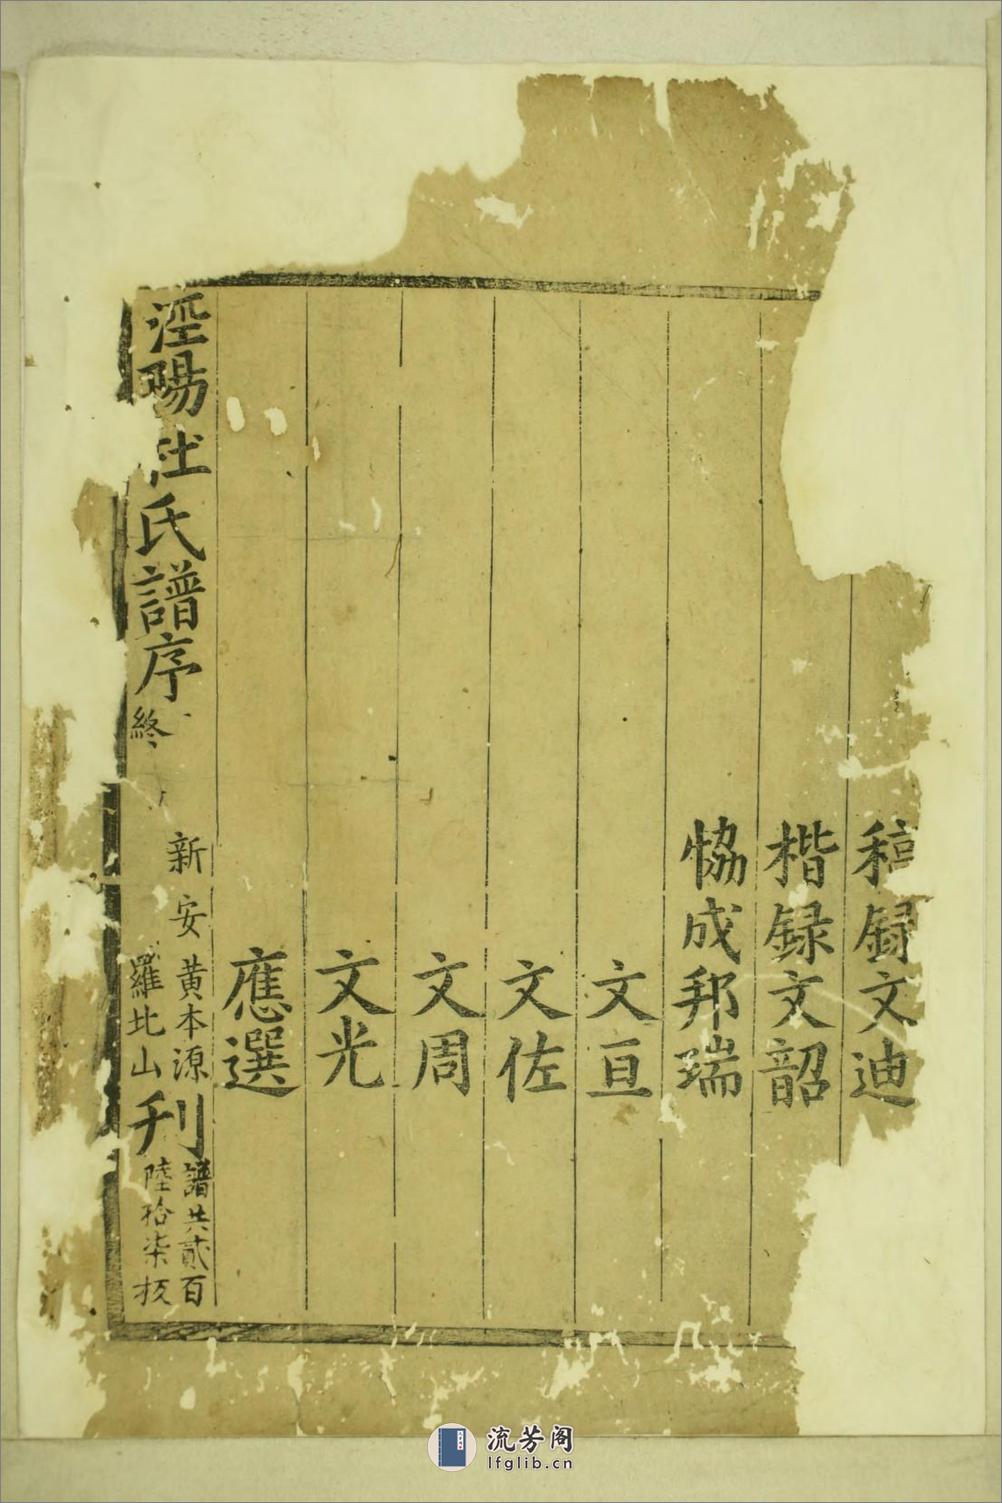 稿録文迪
楷録文韶
恊成邦瑞
文亘
文佐
文周
文光
應選
涇陽 氏譜序終
新安黄本源
羅比山
刋
譜共貳百
陸拾柒板
流芳阁
lfglib.cn